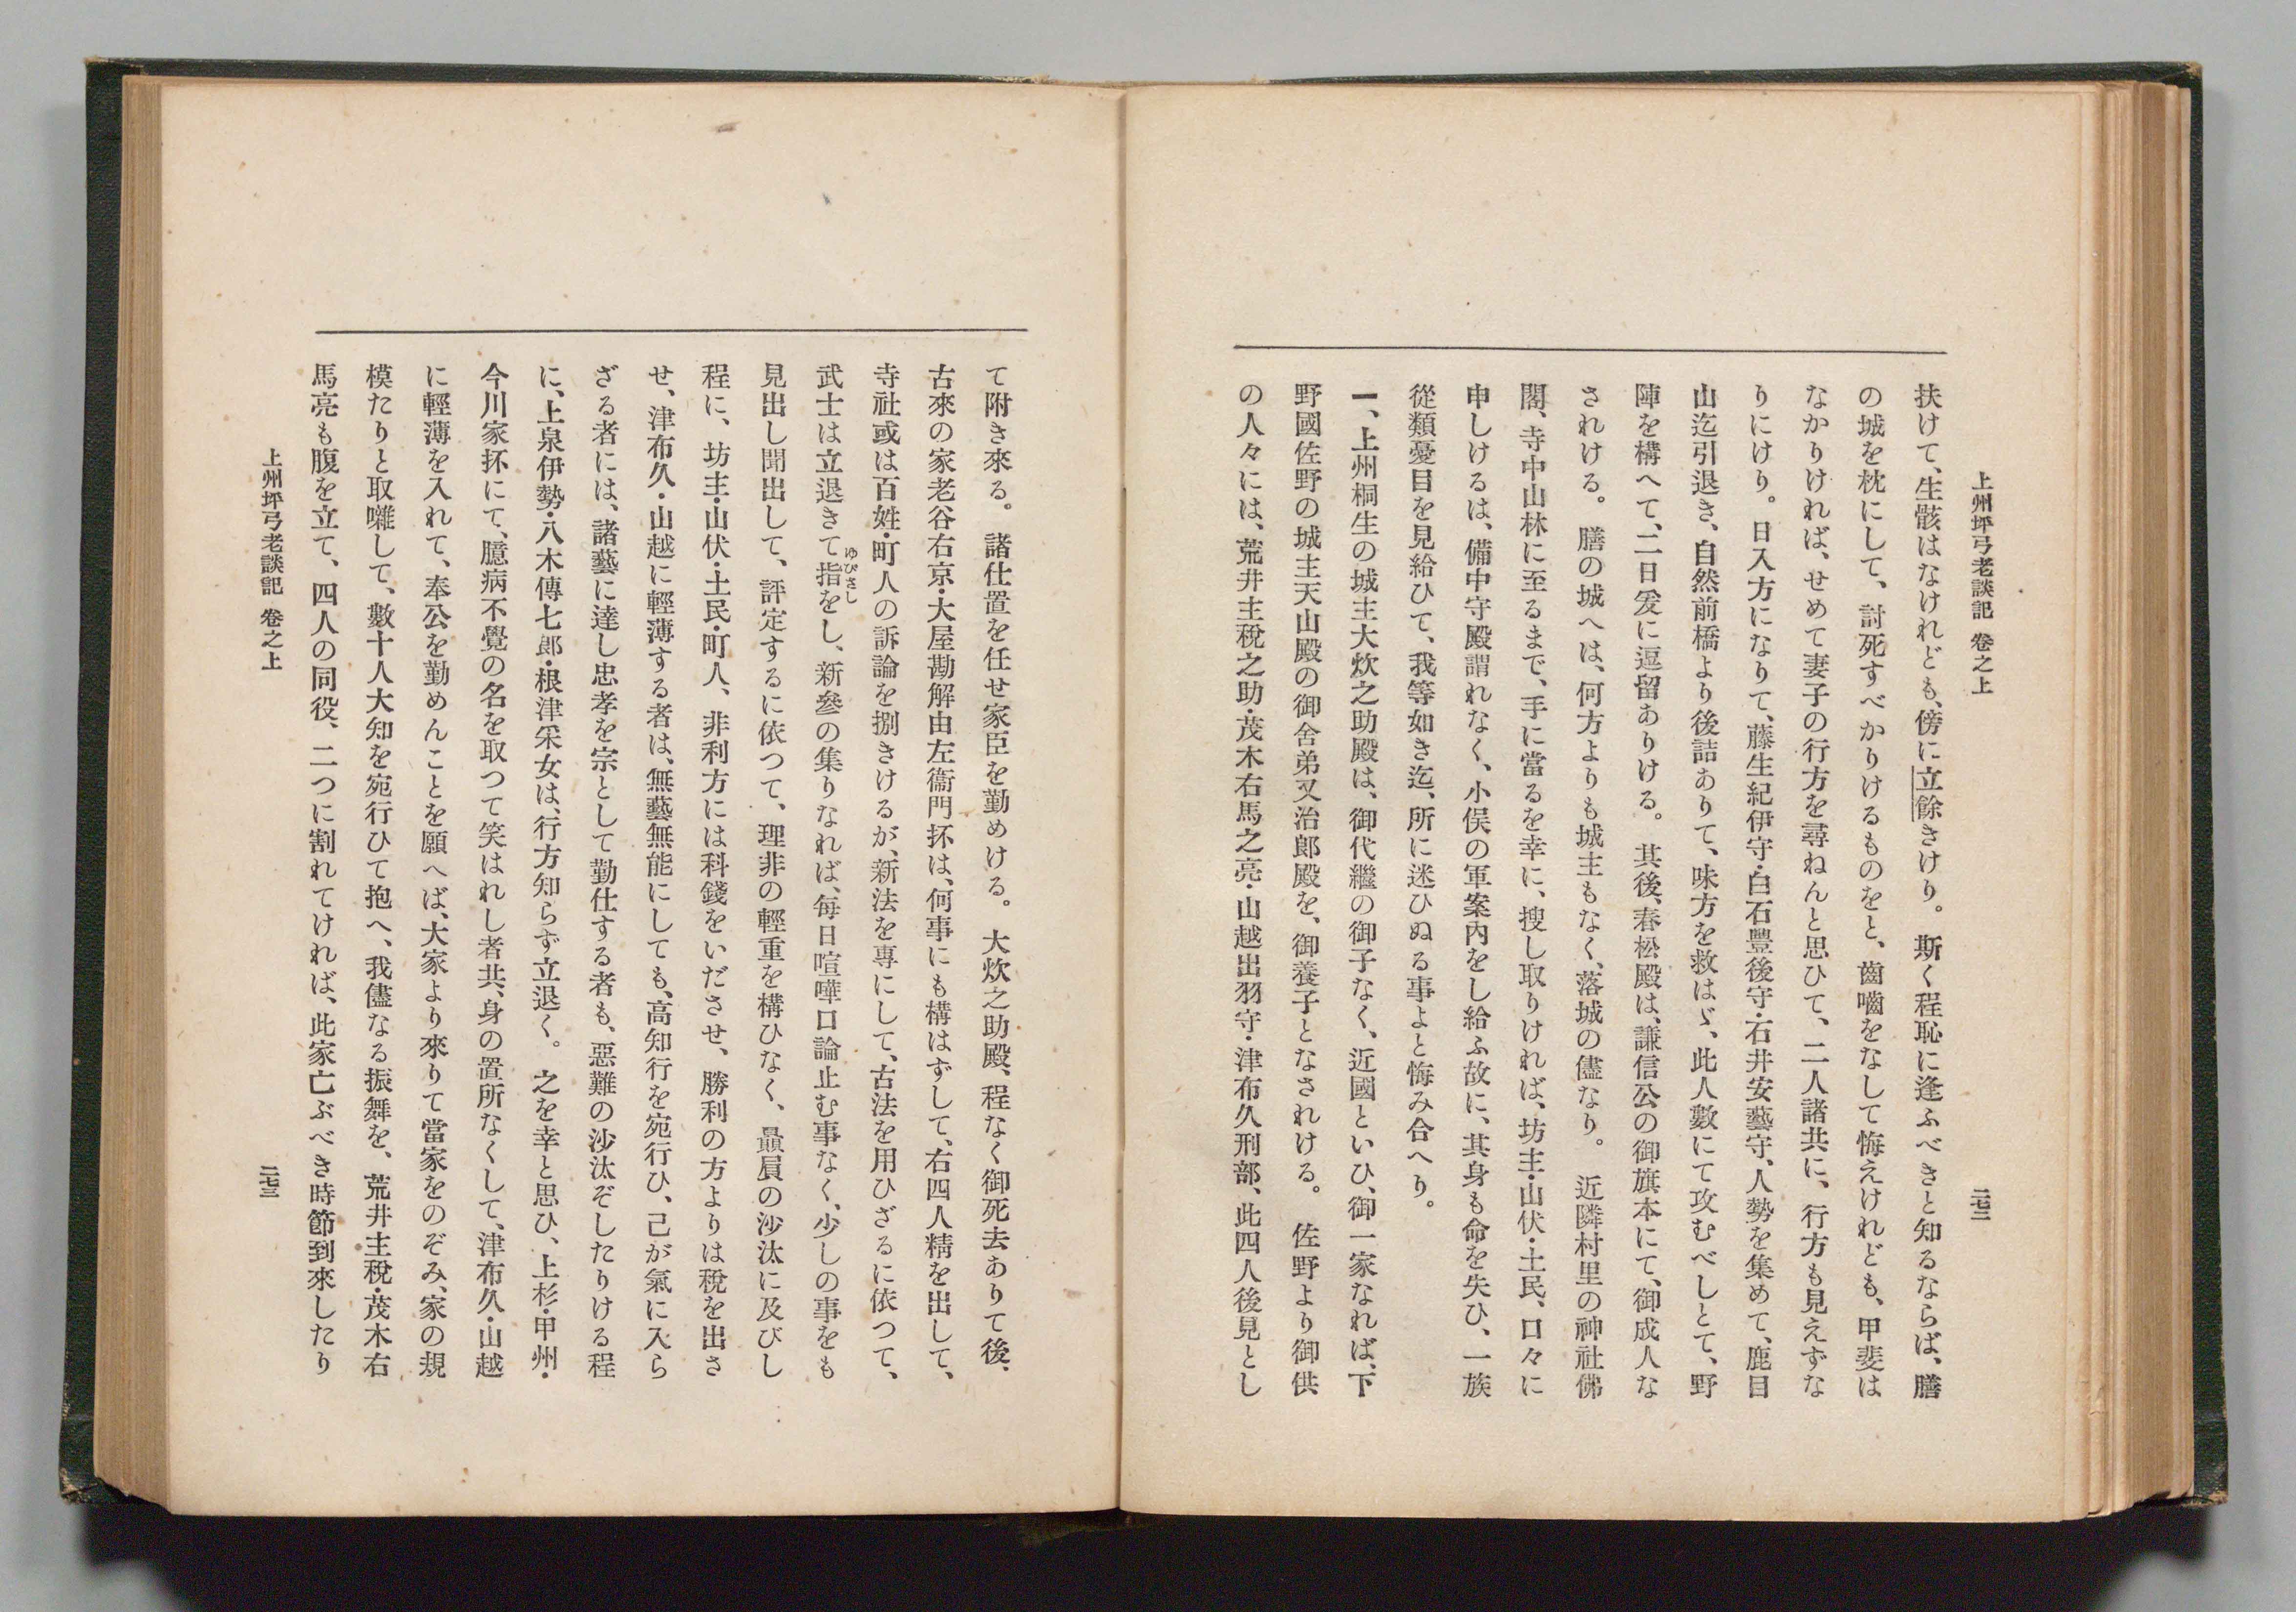 上州坪弓老談記 卷之上
二七二
扶けて、生骸はなけれども、傍に立餘きけり。斯く程恥に逢ふべきと知るならば、膳
の城を枕にして、討死すべかりけるものをと、齒嚙をなして悔えけれども、甲斐は
なかりければ、せめて妻子の行方を尋ねんと思ひて、二人諸共に、行方も見えずな
りにけり。日入方になりて、藤生紀伊守・白石豐後守・石井安藝守、人勢を集めて、鹿目
山迄引退き、自然前橋より後詰ありて、味方を救はゞ、此人數にて攻むべしとて、野
陣を構へて、二日爰に逗留ありける。其後、春松殿は、謙信公の御旗本にて、御成人な
されける。膳の城へは、何方よりも城主もなく、落城の儘なり。近隣村里の神社佛
閣、寺中山林に至るまで、手に當るを幸に、搜し取りければ、坊主・山伏・土民、口々に
申しけるは、備中守殿謂れなく、小俣の軍案內をし給ふ故に、其身も命を失ひ、一族
從類憂目を見給ひて、我等如き迄、所に迷ひぬる事よと悔み合へり。
一、上州桐生の城主大炊之助殿は、御代繼の御子なく、近國といひ、御一家なれば、下
野國佐野の城主天山殿の御舍弟又治郞殿を、御養子となされける。佐野より御供
の人々には、荒井主稅之助・茂木右馬之亮・山越出羽守・津布久刑部、此四人後見とし
て附き來る。諸仕置を任せ家臣を勤めける。大炊之助殿、程なく御死去ありて後、
古來の家老谷右京・大屋勘解由左衞門抔は、何事にも構はずして、右四人精を出して、
寺社或は百姓・町人の訴論を捌きけるが、新法を專にして、古法を用ひざるに依つて、
武士は立退きて指をし、新參の集りなれば、每日喧嘩口論止む事なく、少しの事をも
ゆびさし
見出し聞出して、評定するに依つて、理非の輕重を構ひなく、贔屓の沙汰に及びし
程に、坊主・山伏・土民・町人、非利方には科錢をいださせ、勝利の方よりは稅を出さ
せ、津布久・山越に輕薄する者は、無藝無能にしても、高知行を宛行ひ、己が氣に入ら
ざる者には、諸藝に達し忠孝を宗として勤仕する者も、惡難の沙汰ぞしたりける程
に、上泉伊勢・八木傳七郞・根津采女は、行方知らず立退く。之を幸と思ひ、上杉・甲州・
今川家抔にて、臆病不覺の名を取つて笑はれし者共、身の置所なくして、津布久・山越
に輕薄を入れて、奉公を勤めんことを願へば、大家より來りて當家をのぞみ、家の規
模たりと取囃して、數十人大知を宛行ひて抱へ、我儘なる振舞を、荒井主稅・茂木右
馬亮も腹を立て、四人の同役、二つに割れてければ、此家亡ぶべき時節到來したり
上州坪弓老談記 卷之上
二七三